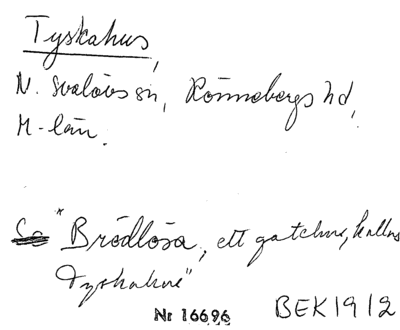 Tyskahus,
N. Svalövs sn, Rönnebergs hd,
M-län.
* Brödlösa, ett gatehus, kallas
Tyskahus"
Nr 16696 BEK 1912